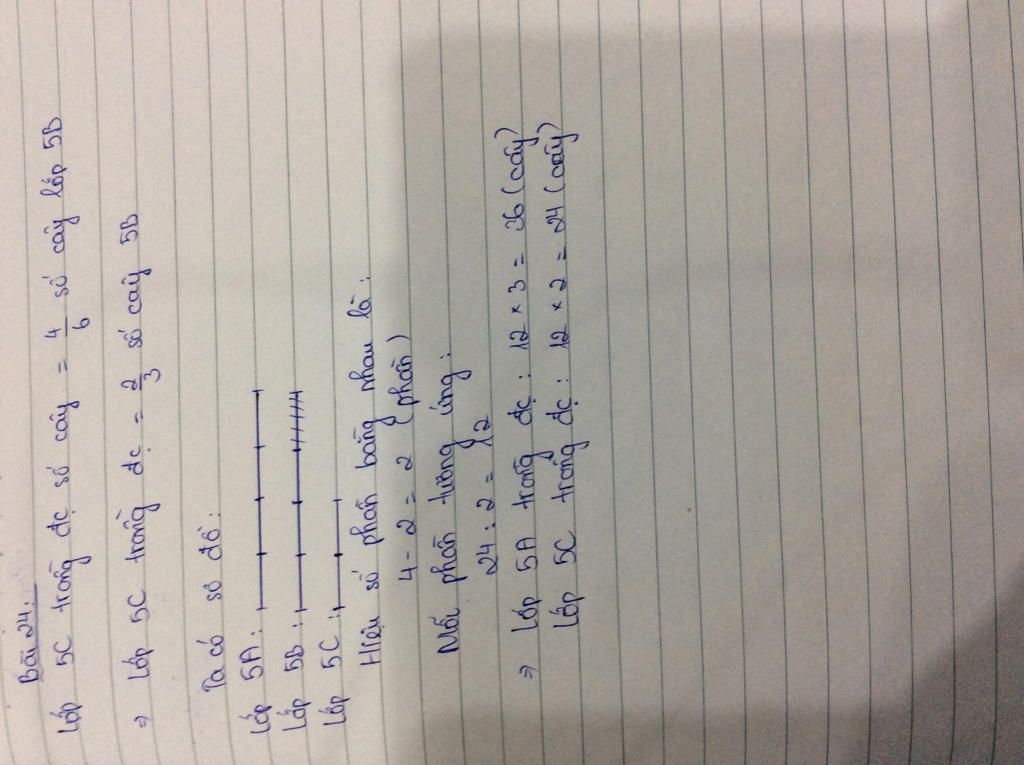 Bài 24:
Lớp 5C trồng đc số cây = 4/6 số cây lớp 5B
⇒ Lớp 5C trồng đc = 2/3 số cây 5B
Ta có sơ đồ:
Lớp 5A:
Lớp 5B:
Lớp 5C:
Hiệu số phần bằng nhau là:
4 - 2 = 2 (phần)
Mỗi phần tương ứng:
24 : 2 = 12
⇒ Lớp 5A trồng đc: 12 × 3 = 36 (cây)
Lớp 5C trồng đc: 12 × 2 = 24 (cây)